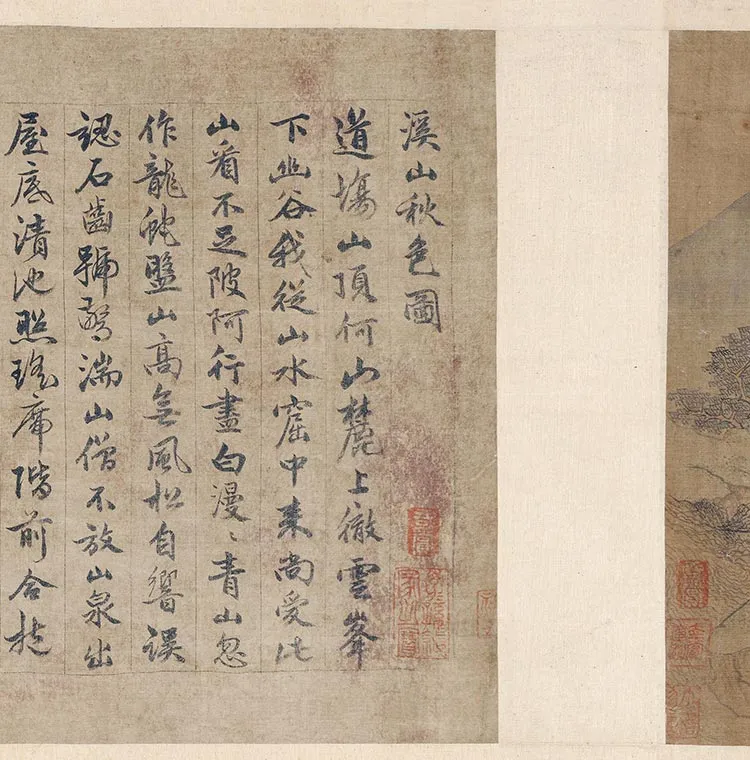 溪山秋色圖
道塲山頂何山麓上徹雲峯
下幽谷我從山水窟中来尚受此
山看不足陂阿行盡白漫〻青山忽
作龍蛇盤山高無風松自響誤
認石齒號驚湍山僧不放山泉出
屋底清池照瑤席階前合抱